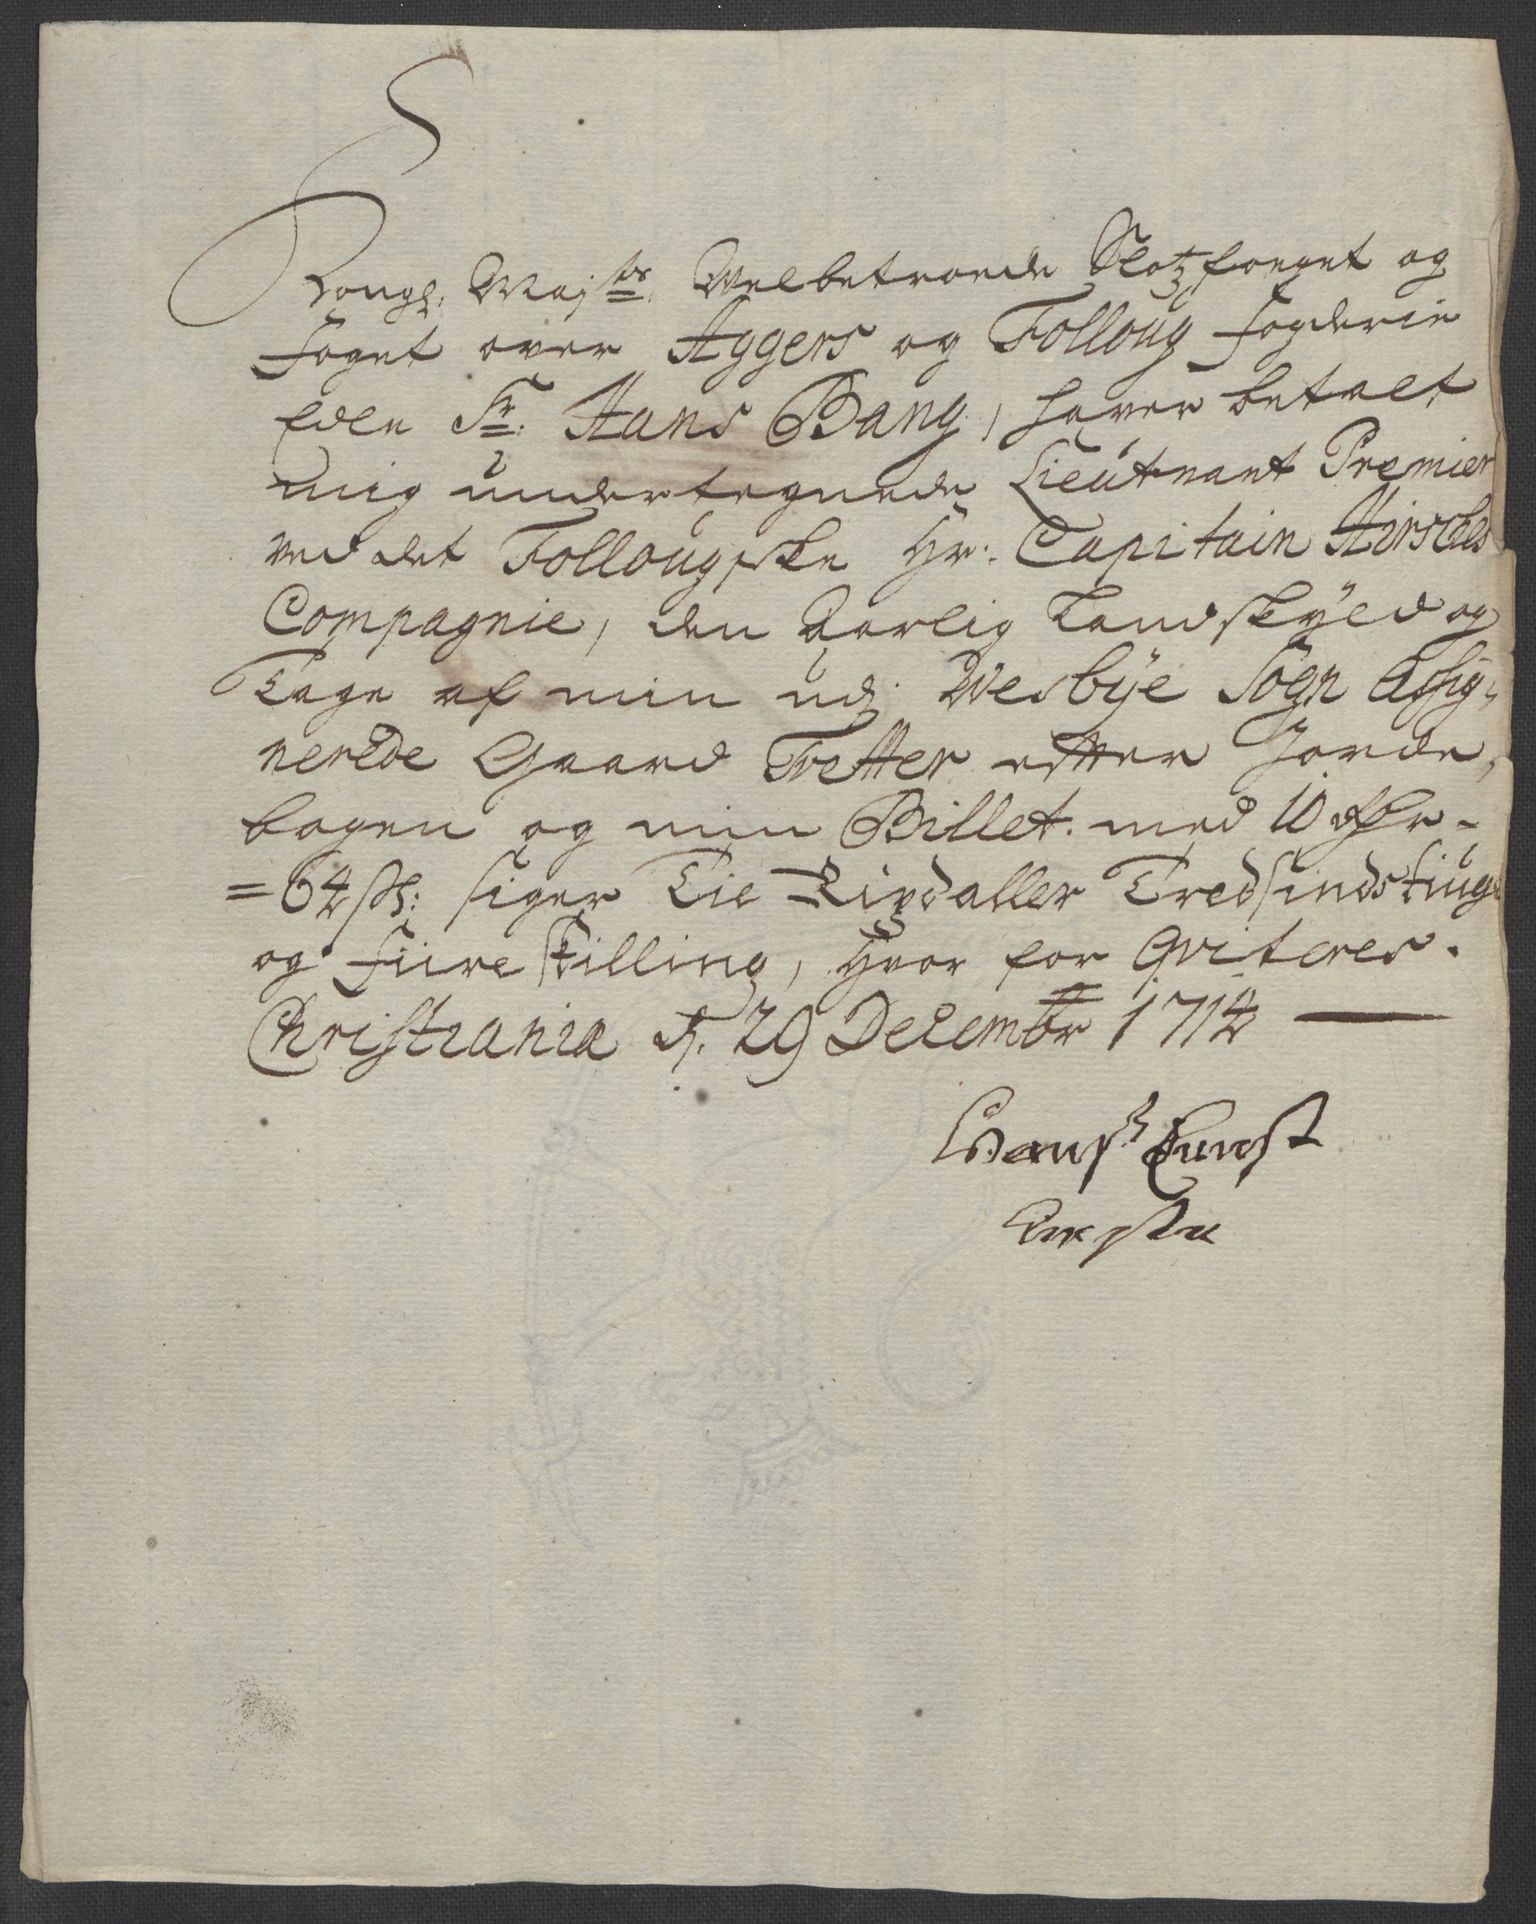 Kongl: Maj:ts Welbetroede Slotzfoeget og
Foget over Aggers og Folloug Fogderie
Edle Sr: Hans Bang, hafver betalt
mig undertegnede Lieutnant Premier
ved det Follougske Hr: Capitain Hirsches
Compagnie, den Aarlig Landskyld og
Tage af min udj Wesbye Sogn Assig-
nerede Gaard Tretter efter Jorde-
bogen og min Billet. med 10 Rdr -
= 64 sh: siger Tie Rixdaller Tredsindstiuge
og Fiire skilling, Hvor for Qviteres.
Christiania d. 29 Decembr 1714
Ernst